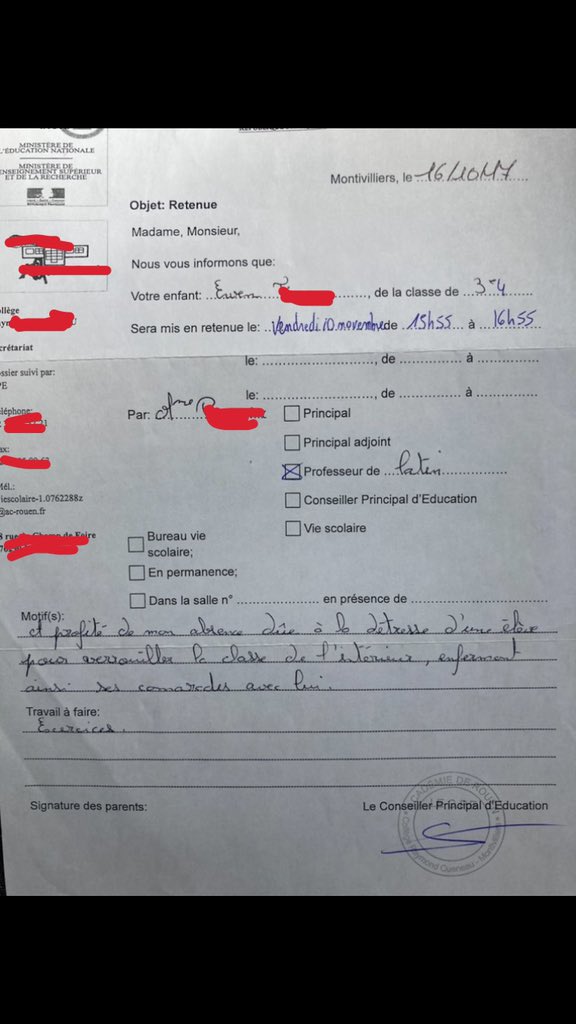 MINISTÈRE DE
L'ÉDUCATION NATIONALE
MINISTÈRE DE
ENSEIGNEMENT SUPÉRIEUR
ET DE LA RECHERCHE
Montivilliers, le 16/10/17
Objet: Retenue
Madame, Monsieur,
Nous vous informons que:
Votre enfant: Ewen, de la classe de 3-4
Sera mis en retenue le: Vendredi 10 novembre de 15h55 à 16h55
le: , de à
le: , de à
ollège
crétariat
ossier suivi par:
PE
léphone:
ax:
Mél.:
viescolaire-1.0762288z
@ac-rouen.fr
Par: Mme
Principal
Principal adjoint
Professeur de latin
Conseiller Principal d'Education
Vie scolaire
Bureau vie
scolaire;
En permanence;
Dans la salle n° en présence de
Motif(s):
et profité de mon absence dûe à la détresse d'une élève
pour verrouiller la classe de l'intérieur, enfermant
ainsi ses camarades avec lui.
Travail à faire:
Exercices.
Signature des parents:
Le Conseiller Principal d'Education
ACADÉMIE DE ROUEN
Collège Raymond Queneau